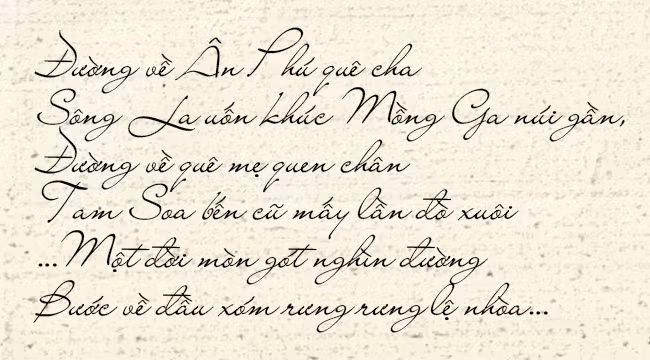 Đường về Ân Phú quê cha
Sông La uốn khúc Mồng Ga núi gần,
Đường về quê mẹ quen chân
Tam Soa bến cũ mấy lần đò xuôi
... Một đời mòn gót nghìn đường
Bước về đầu xóm rưng rưng lệ nhòa...